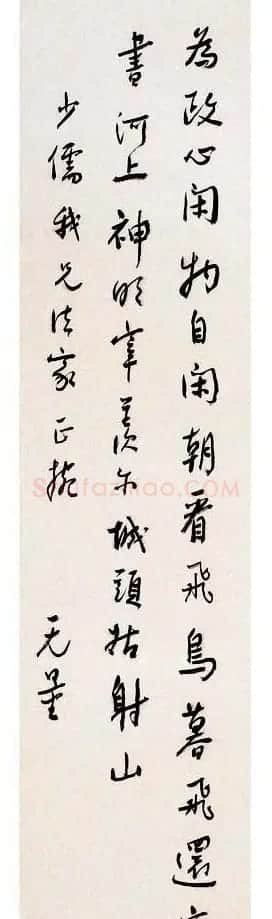 為政心閑物自閑朝看飛鳥暮飛還
書河上神明宰羨尔城頭姑射山
少儒我兄法家正
无量
Shufazhao.COM